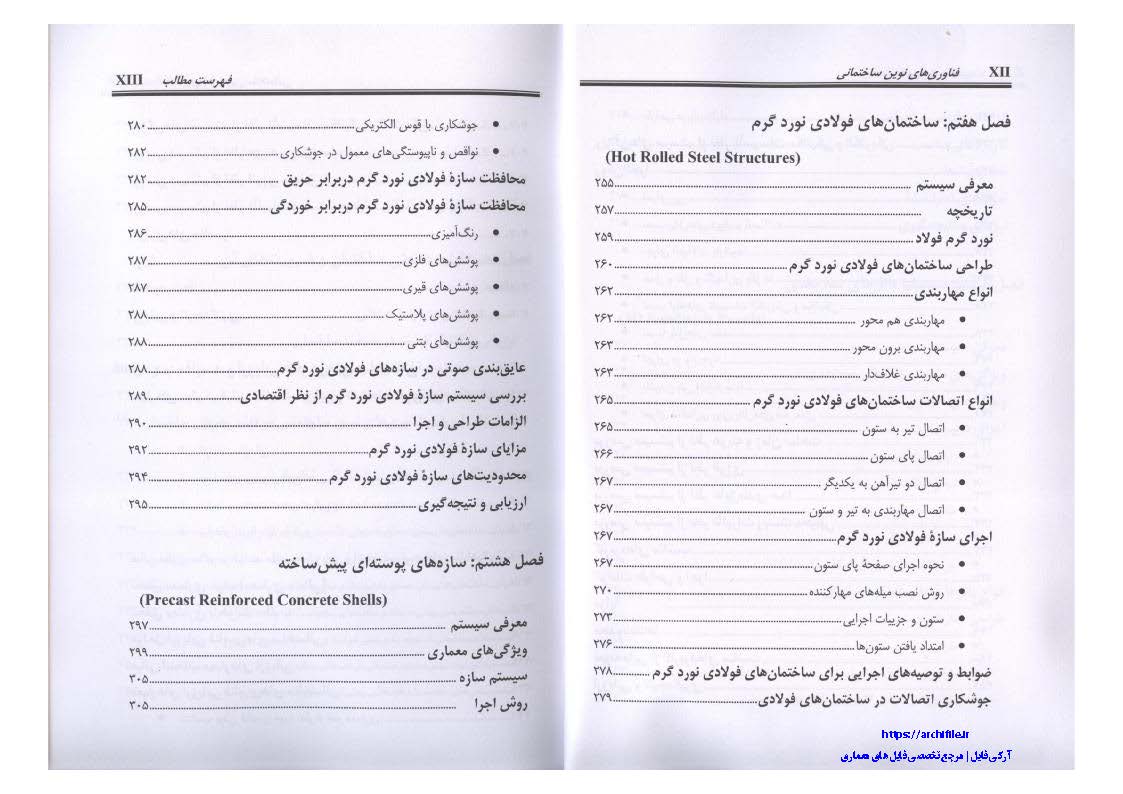 XII فناوری‌های نوین ساختمانی
فصل هفتم: ساختمان‌های فولادی نورد گرم
(Hot Rolled Steel Structures)
معرفی سیستم ........ ۲۵۵
تاریخچه ........ ۲۵۷
نورد گرم فولاد ........ ۲۵۹
طراحی ساختمان‌های فولادی نورد گرم ........ ۲۶۰
انواع مهاربندی ........ ۲۶۲
● مهاربندی هم محور ........ ۲۶۲
● مهاربندی برون محور ........ ۲۶۳
● مهاربندی غلاف‌دار ........ ۲۶۳
انواع اتصالات ساختمان‌های فولادی نورد گرم ........ ۲۶۵
● اتصال تیر به ستون ........ ۲۶۵
● اتصال پای ستون ........ ۲۶۶
● اتصال دو تیرآهن به یکدیگر ........ ۲۶۷
● اتصال مهاربندی به تیر و ستون ........ ۲۶۷
اجرای سازهٔ فولادی نورد گرم ........ ۲۶۷
● نحوه اجرای صفحهٔ پای ستون ........ ۲۶۷
● روش نصب میله‌های مهارکننده ........ ۲۷۰
● ستون و جزییات اجرایی ........ ۲۷۳
● امتداد یافتن ستون‌ها ........ ۲۷۶
ضوابط و توصیه‌های اجرایی برای ساختمان‌های فولادی نورد گرم ........ ۲۷۸
جوشکاری اتصالات در ساختمان‌های فولادی ........ ۲۷۹
https://archifile.ir
آرکی فایل | مرجع تخصصی فایل های معماری
فهرست مطالب XIII
● جوشکاری با قوس الکتریکی ........ ۲۸۰
● نواقص و ناپیوستگی‌های معمول در جوشکاری ........ ۲۸۲
محافظت سازهٔ فولادی نورد گرم دربرابر حریق ........ ۲۸۲
محافظت سازهٔ فولادی نورد گرم دربرابر خوردگی ........ ۲۸۵
● رنگ‌آمیزی ........ ۲۸۶
● پوشش‌های فلزی ........ ۲۸۷
● پوشش‌های قیری ........ ۲۸۷
● پوشش‌های پلاستیک ........ ۲۸۸
● پوشش‌های بتنی ........ ۲۸۸
عایق‌بندی صوتی در سازه‌های فولادی نورد گرم ........ ۲۸۸
بررسی سیستم سازهٔ فولادی نورد گرم از نظر اقتصادی ........ ۲۸۹
الزامات طراحی و اجرا ........ ۲۹۰
مزایای سازهٔ فولادی نورد گرم ........ ۲۹۲
محدودیت‌های سازهٔ فولادی نورد گرم ........ ۲۹۴
ارزیابی و نتیجه‌گیری ........ ۲۹۵
فصل هشتم: سازه‌های پوسته‌ای پیش‌ساخته
(Precast Reinforced Concrete Shells)
معرفی سیستم ........ ۲۹۷
ویژگی‌های معماری ........ ۲۹۹
سیستم سازه ........ ۳۰۵
روش اجرا ........ ۳۰۵